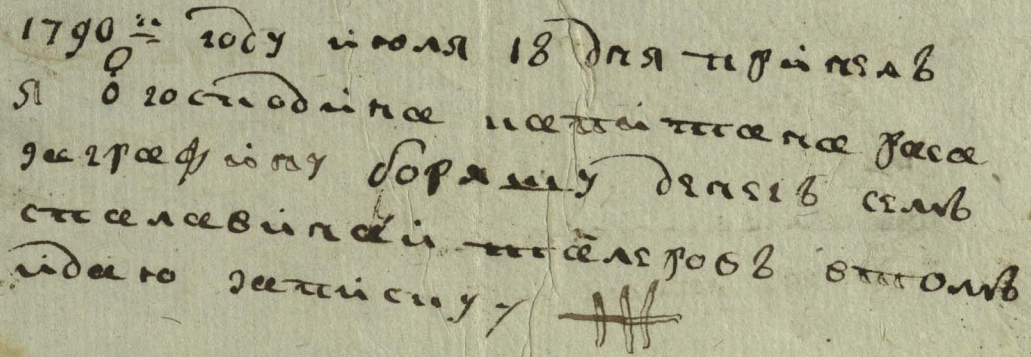 1790го году июля 18 дня принелъ
я о господина капитана раса
за графину денегъ семъ
спалавинаи талеровъ втомъ
идаю записку